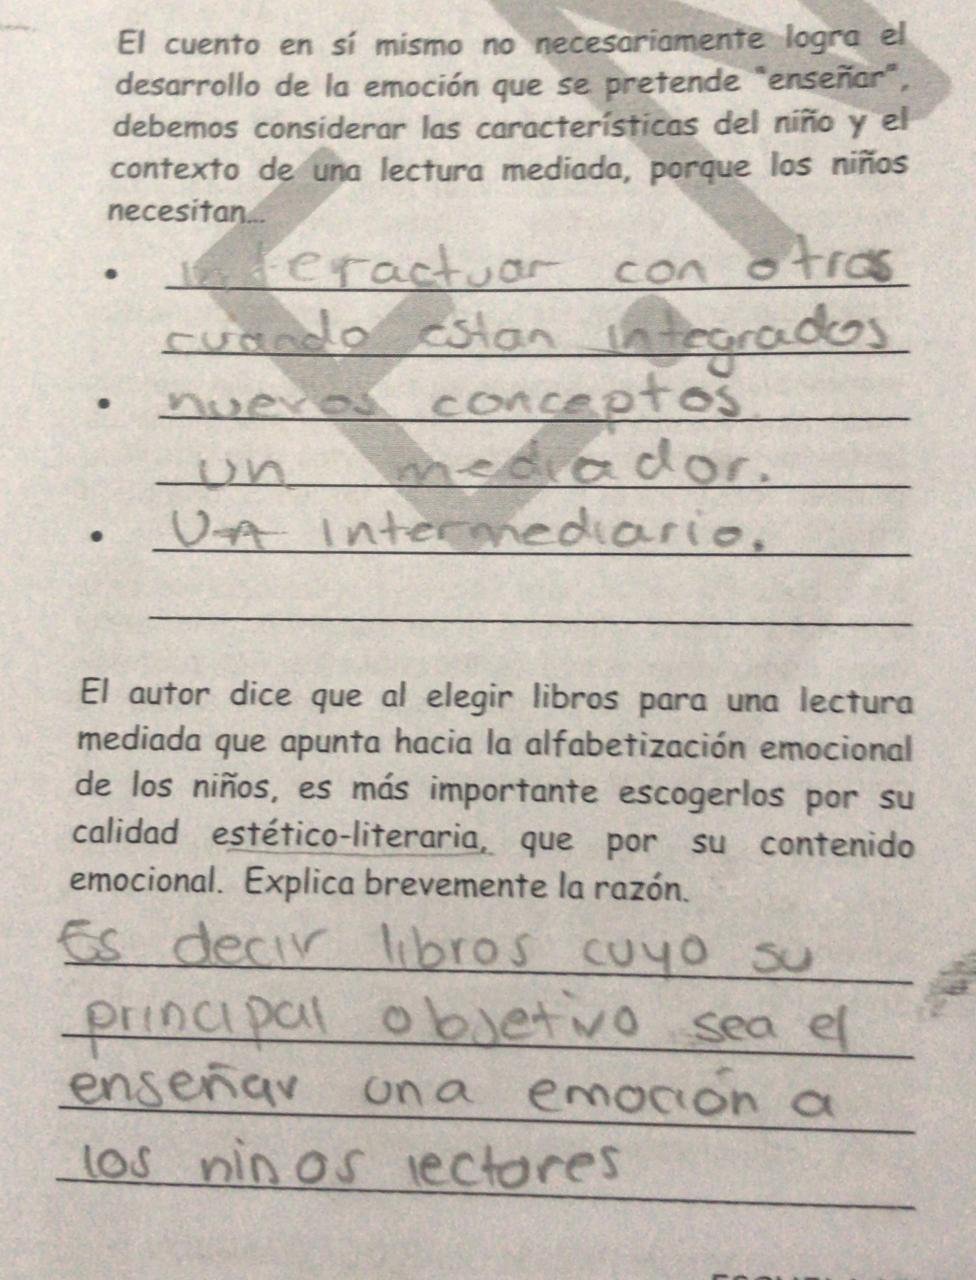 El cuento en sí mismo no necesariamente logra el
desarrollo de la emoción que se pretende "enseñar",
debemos considerar las características del niño y el
contexto de una lectura mediada, porque los niños
necesitan...
• interactuar con otros
cuando estan integrados
• nuevos conceptos
un mediador.
• Un Intermediario.
El autor dice que al elegir libros para una lectura
mediada que apunta hacia la alfabetización emocional
de los niños, es más importante escogerlos por su
calidad estético-literaria, que por su contenido
emocional. Explica brevemente la razón.
Es decir libros cuyo su
principal objetivo sea el
enseñar una emoción a
los niños lectores